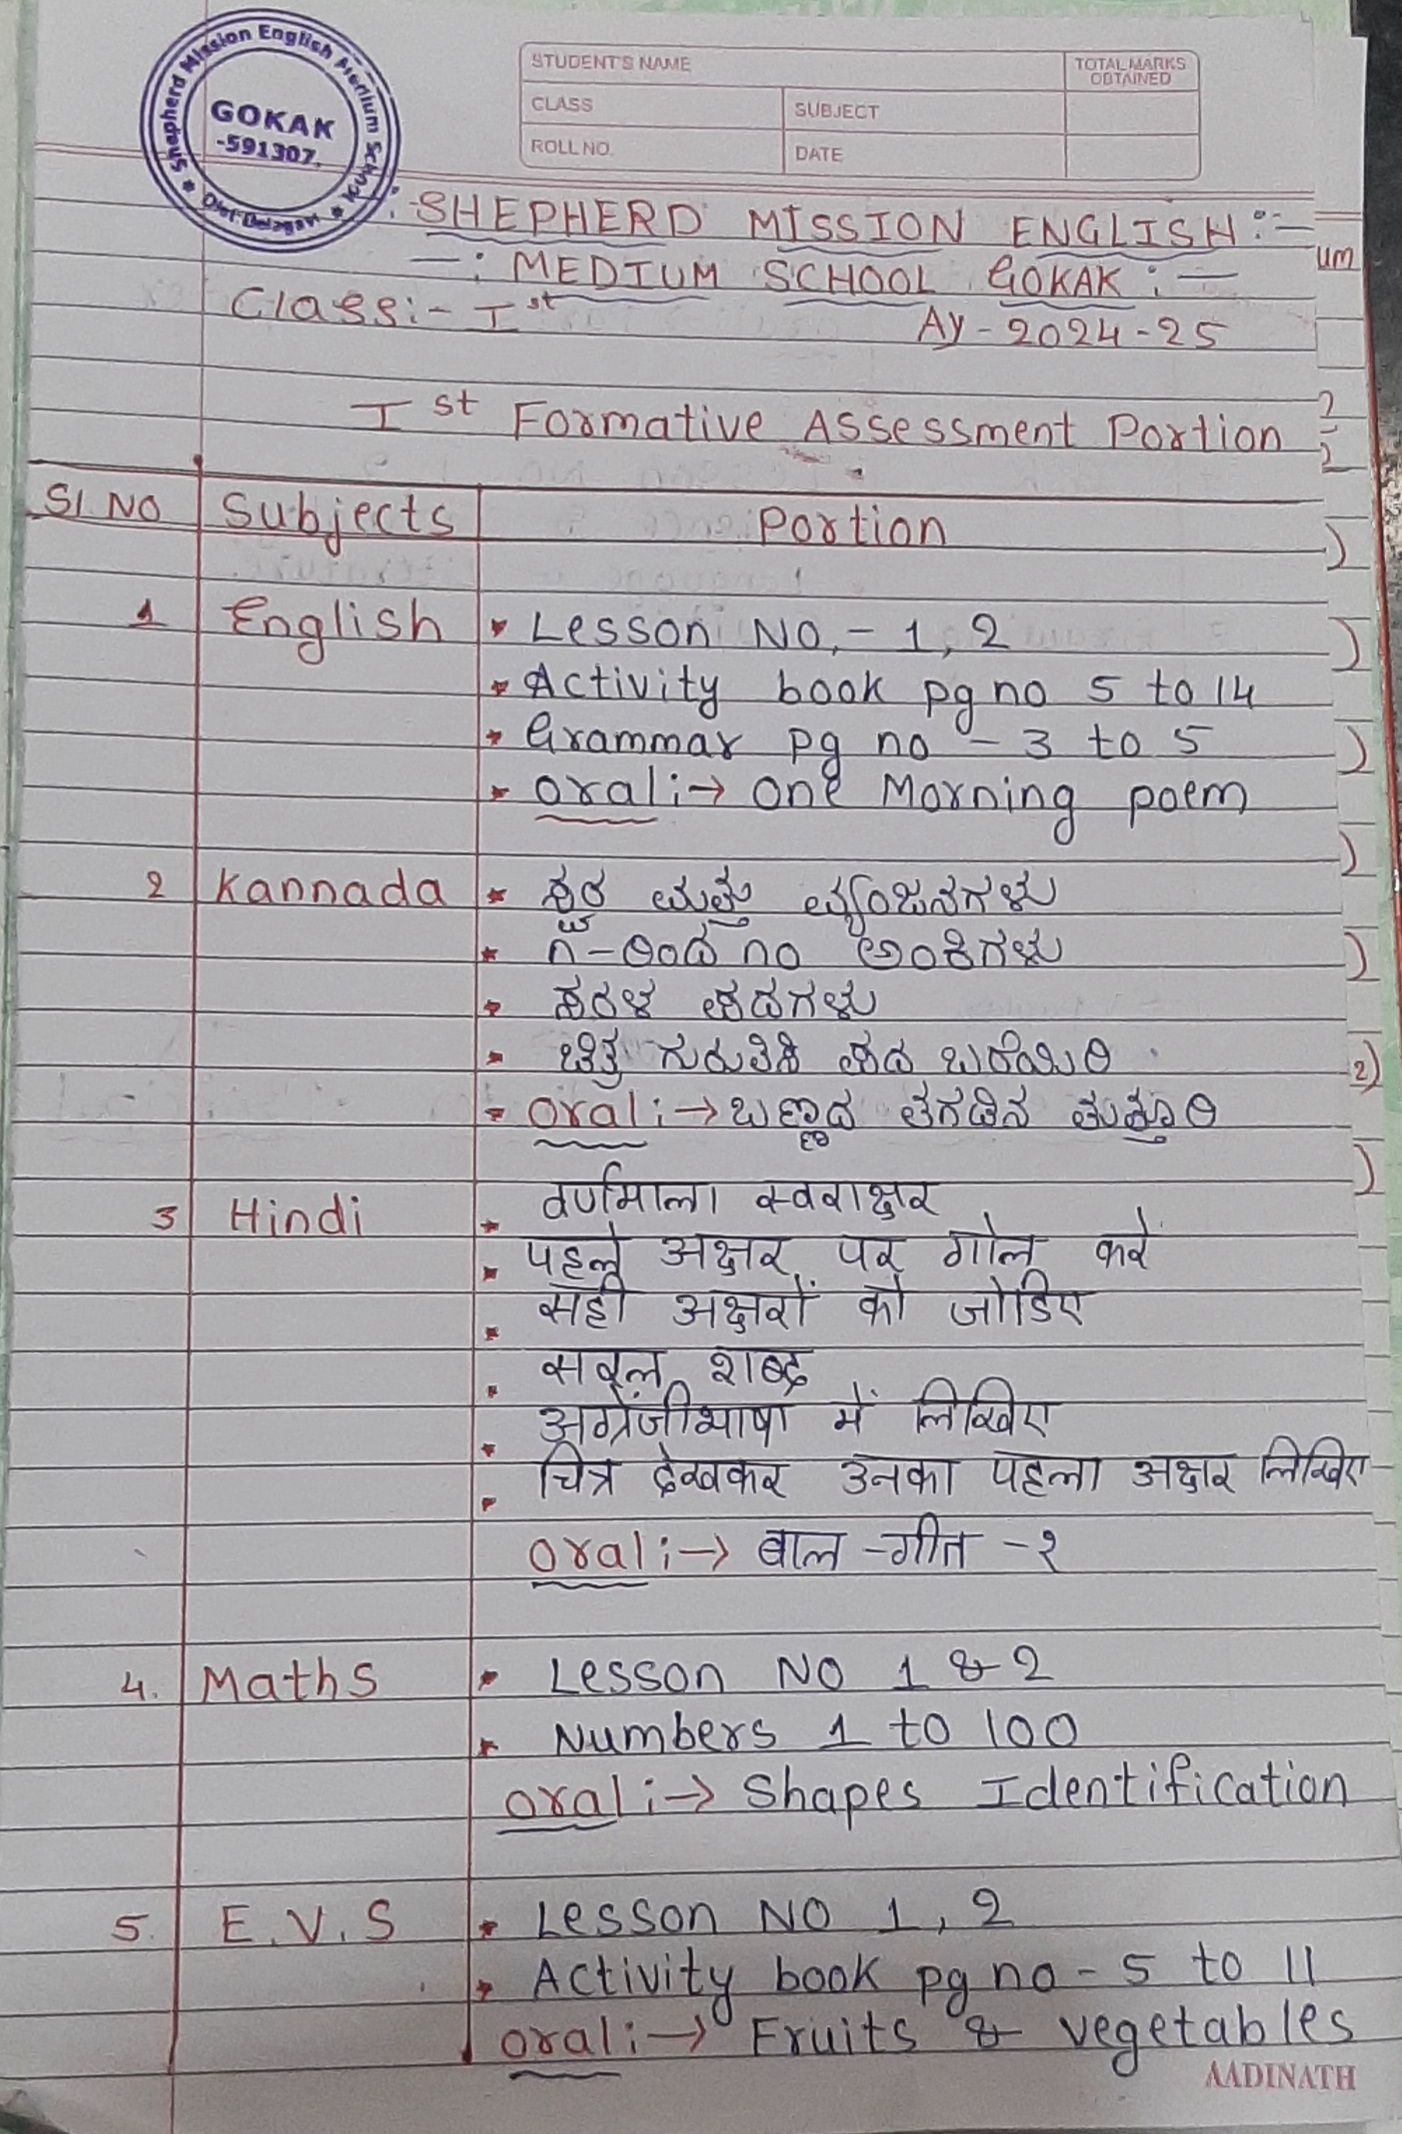 Shepherd Mission English Medium School
GOKAK
-591307.
Dist Belagavi
STUDENT'S NAME
TOTAL MARKS OBTAINED
CLASS
SUBJECT
ROLL NO.
DATE
SHEPHERD MISSION ENGLISH :-
-: MEDIUM SCHOOL GOKAK :-
um
Class:- Ist
AY - 2024-25
Ist Formative Assessment Portion
Sl NO Subjects Portion
1 English • Lesson NO.- 1, 2
• Activity book pg no 5 to 14
• Grammar pg no - 3 to 5
• oral:→ One Morning poem
2 Kannada • ಸ್ವರ ಮತ್ತು ವ್ಯಂಜನಗಳು
• ೧-ರಿಂದ ೧೦ ಅಂಕಿಗಳು
• ಸರಳ ಪದಗಳು
• ಚಿತ್ರ ಗುರುತಿಸಿ ಪದ ಬರೆಯಿರಿ
• oral:→ ಬಣ್ಣದ ತಗಡಿನ ತುತ್ತೂರಿ
3 Hindi • वर्णमाला स्वराक्षर
• पहले अक्षर पर गोल करे
• सही अक्षरों को जोडिए
• सरल शब्द
• अग्रेंजीभाषा में लिखिए
• चित्र देखकर उनका पहला अक्षर लिखिए
oral:→ बाल-गीत -१
4. Maths • Lesson NO 1 & 2
• Numbers 1 to 100
oral:→ Shapes Identification
5. E.V.S • Lesson NO 1, 2
• Activity book pg no - 5 to 11
oral:→ Fruits & vegetables
AADINATH